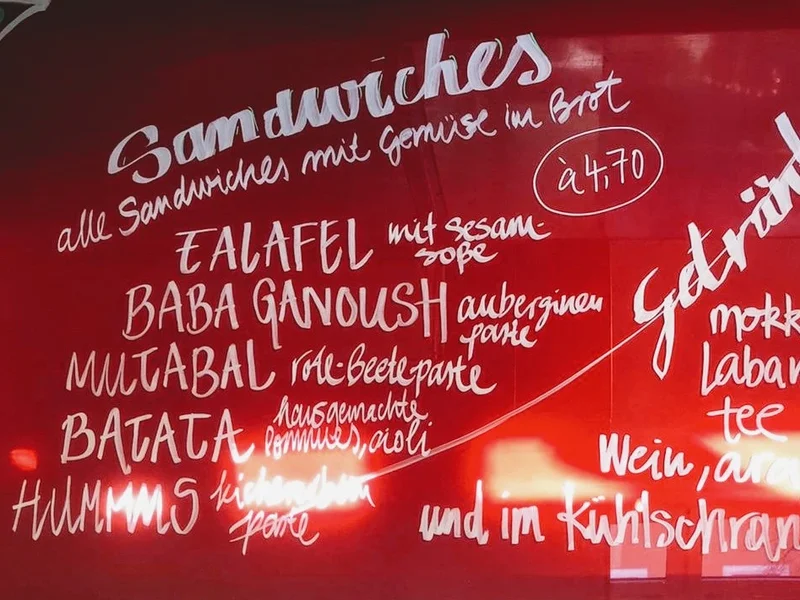 Sandwiches
alle Sandwiches mit Gemüse im Brot
à 4,70
FALAFEL mit sesam-
soße
BABA GANOUSH auberginen
paste
MUTABAL rote-Beete-paste
BATATA hausgemachte
pommes, aioli
HUMMUS kichererbsen
paste
Geträn
mokk
Laban
tee
Wein, ara
und im Kühlschran